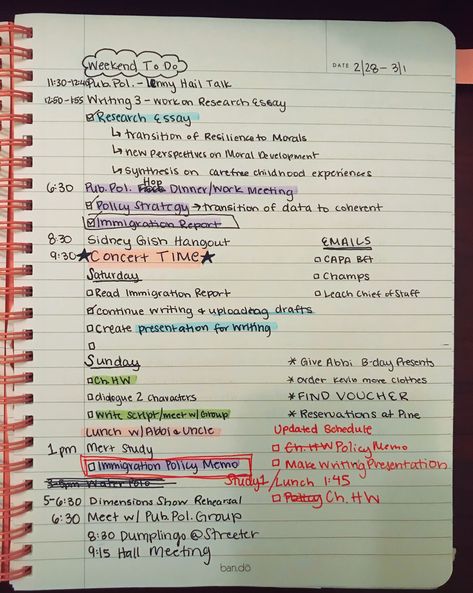 Weekend To Do
DATE 2/28 - 3/1
11:30-12:40 Pub. Pol. - Lenny Hail Talk
12:50-1:55 Writing 3 - work on Research Essay
Research Essay
↳ transition of Resilience to Morals
↳ new perspectives on Moral Development
↳ synthesis on carefree childhood experiences
6:30 Pub. Pol. Hop Dinner/Work Meeting
Policy Strategy → transition of data to coherent
Immigration Report
8:30 Sidney Gish Hangout
9:30 ★Concert TIME★
EMAILS
CAPA BFT
Champs
Leach Chief of Staff
Saturday
Read Immigration Report
continue writing & uploading drafts
Create presentation for writing
Sunday
Ch. HW
dialogue 2 characters
Write script/meet w/ Group
Lunch w/ Abbi & Uncle
* Give Abbi B-day Presents
* order Kevin more clothes
* FIND VOUCHER
* Reservations at Pine
Updated Schedule
Ch. HW Policy Memo
Make Writing Presentation
Policy Ch. HW
1 pm Mert Study
Immigration Policy Memo
Study 1/Lunch 1:45
5-6:30 Dimensions Show Rehearsal
6:30 Meet w/ Pub. Pol. Group
8:30 Dumplings @ Streeter
9:15 Hall Meeting
ban.dō